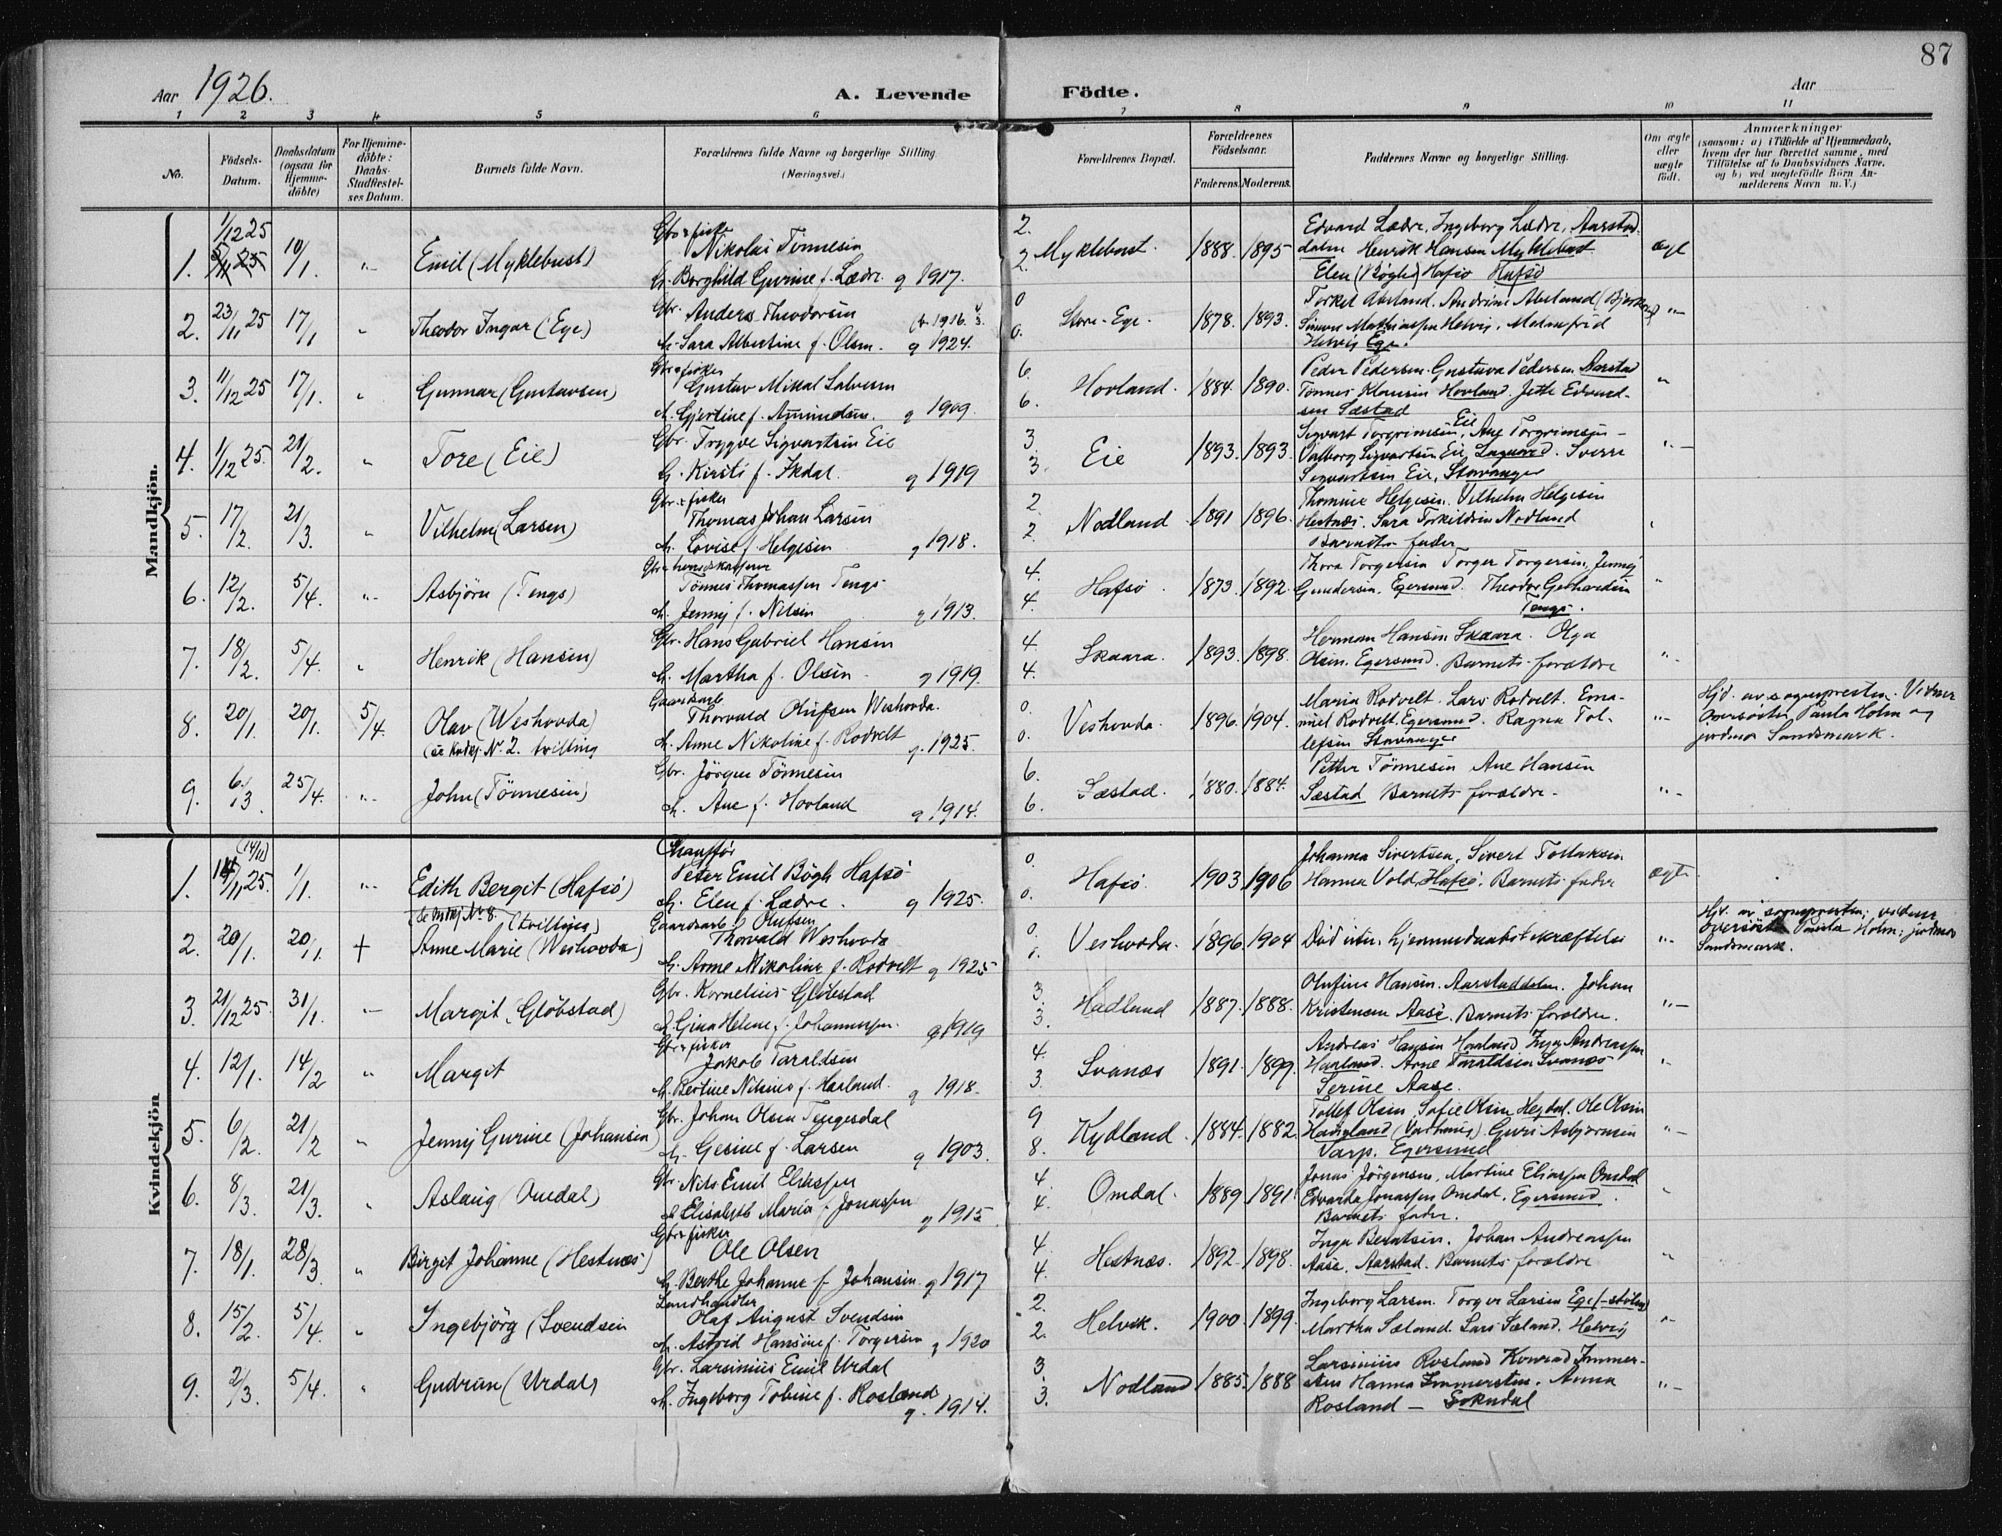 87
Aar 1926.
A. Levende Födte.
Aar
1 2 3 4 5 6 7 8 9 10 11
No.
Födsels-Datum.
Daabsdatum (ogsaa for Hjemmedöbte)
For Hjemmedöbte: Daabs-Stadfæstelses Datum.
Barnets fulde Navn.
Forældrenes fulde Navne og borgerlige Stilling (Næringsvei.)
Forældrenes Bopæl.
Forældrenes Födselsaar.
Faderens. Moderens.
Faddernes Navne og borgerlige Stilling.
Om ægte eller uægte födt.
Anmærkninger
(saasom: a) i Tilfælde af Hjemmedaab,
hvem der har forrettet samme, med
Tilföielse af to Daabsvidners Navne,
og b) ved uægtefödte Börn Anmelderens Navn m. V.)
Mandkjön.
1. 1/12 25 10/1. Emil (Myklebust)
Gbr & fisker Nikolai Tönnesen
h. Borghild Gurine f. Lædre g 1917.
2. 2 Myklebust. 1888. 1895
Edvard Lædre, Ingeborg Lædre, Aarstad
dalen Henrik Hansen Myklebust
Elen (Bögh) Hafsö Hafsö
ægt
2. 23/11 25 17/1 Theodor Ingvar (Ege)
Gbr. Anders Theodorsen
h. Sara Albertine f. Olsen. g 1924.
0 0. Store-Ege. 1878. 1893.
Helvig Ege.
3. 11/12 25 17/1. Gunnar (Gustavsen)
Gbr & fisker Gustav Mikal Salvesen
h. Gjertine f. Amundsen. g 1909.
6. 6. Hovland. 1884. 1890.
Peder Pedersen. Gustava Pedersen Aarstad
Tönnes Klausen Hovland. Jette Edvard-
sen Sæstad
4. 1/12 25. 21/2. Tore (Eie)
Gbr. Trygve Sigvartsen Eie
h. Kirsti f. Ikdal. g 1919
3 3. Eie 1893. 1893.
Sigvart Torgrimsen Eie, Ane Torgrimsen -
Valborg Sigvartsen Eie, Sverre
Sigvartsen Eie, Stavanger
5. 17/2. 21/3. Vilhelm (Larsen)
Gbr & fisker Thomas Johan Larsen
h. Lovise f. Helgesen g 1918.
2. 2. Nodland 1891 1896.
Thomine Helgesen. Vilhelm Helgesen
Hestnæs. Sara Torkildsen Nodland
Barnets fader
6. 12/2. 5/4. Asbjörn (Tengs)
Tönnes Thomassen Tengs
h. Jenny f. Nilsen g 1913.
4. 4. Hafsö. 1873. 1892.
Thora Torgersen Torger Torgersen, Jenny
Gundersen. Egersund. Theodor Gerhardsen
Tengs.
7. 18/2. 5/4. Henrik (Hansen)
Gbr. Hans Gabriel Hansen
h. Martha f. Olsen. g 1919.
4 4. Skaara. 1893. 1898.
Herman Hansen Skaara. Olga
Olsen. Egersund. Barnets forældre
8. 20/1. 20/1. 5/4. Olav (Veshovda)
(se kvkj. No 2. tvilling
Gaardsarb. Thorvald Olufsen Weshovda.
h. Anne Nikoline f. Rodvelt g. 1925.
0. 0. Veshovda. 1896. 1904.
Maria Rodvelt. Lars Rodvelt. Ema-
nuel Rodvelt. Egersund. Ragna Tol-
lefsen Stavanger
Hjd. av sogneprest. Vidner
Oversöster Paula Holm og
jordmor Sandsmark.
9. 6/3 25/4. John (Tönnesen)
Gbr. Jörgen Tönnesen
h. Ane f. Hovland g. 1914.
6. 6. Sæstad. 1880. 1884.
Petter Tönnesen Ane Hansen
Sæstad Barnets forældre.
Kvindekjön
1. (14/11) 14/11 25. 1/1. Edith Bergit (Hafsö)
Chauffør Peter Emil Bögh Hafsö
h. Elen f. Lædre. g 1925.
0. 0. Hafsö. 1903. 1906
Johanna Sivertsen, Sivert Tollaksen
Hanna Vold, Hafsö. Barnets fader
ægte
2. 20/1. 20/1. + (se mkj No 8. (tvilling)
Anne Marie (Weshovda)
Gaardsarb Olufsen
Thorvald Weshovda
h. Anne Nikoline f. Rodvelt g 1925
0. Veshovda. 1896. 1904
Hjd. av sognepresten; vidner
Oversöster Paula Holm; jordmor
Sandsmark.
3. 21/12 25. 31/1. Margit (Glöbstad)
Gbr. Kornelius Glöbstad
h. Gina Helene f. Johannessen. g 1919
3. 3. Hadland 1887. 1888.
Olufine Hansen. Aarstaddalen. Johan
Kristensen Aase. Barnets forældre.
4. 12/1. 14/2 Margit
Gbr & fisker Jakob Taraldsen
h. Bertine Nilsine f. Havland. g 1918.
4. 3. Svanæs 1891. 1899.
Andreas Hansen Hovland Inga Andreassen
Arne Taraldsen Svanæs
Serine Aase.
5. 6/2. 21/2 Jenny Gurine (Johansen)
Gbr. Johan Olsen Tengesdal
h. Gesine f. Larsen g 1903.
9 8. Kydland 1884. 1882.
Tollef Olsen, Sofie Olsen Hegdal. Ole Olsen
Guri Asbjörnsen
Varp. Egersund
6. 8/3. 21/3. Aslaug (Omdal)
Gbr Nils Emil Eliassen
h Elisabeth Maria f. Jonassen g 1915
4. 4. Omdal. 1889. 1891
Jonas Jörgensen, Martine Eliassen Omdal
Edvarda Jonassen Omdal. Egersund.
Barnets fader.
7. 18/1. 28/3. Birgit Johanne (Hestnæs)
Gbr & fisker Ole Olsen
h. Berthe Johanne f Johansen g 1917
4. 4. Hestnæs. 1892. 1898.
Inga Berntsen. Johan Andreassen
Aase. Aarstad. Barnets forældre
8. 15/2. 5/4. Ingebjörg (Svendsen
Landhandler Olaf August Svendsen
h. Astrid Hansine f. Torgersen g 1920
2. 2. Helvik. 1900. 1899.
Ingeborg Larsen. Torger Larsen Ege (-stølen)
Martha Sæland. Lars Sæland. Helvig
9. 2/3. 5/4. Gudrun (Urdal)
Gbr. Larsinius Emil Urdal
h. Ingeborg Tobine f. Rosland g. 1914.
3. 3. Nodland 1885. 1888
Larsinius Rosland Konrad Immer-
sten Hanna Immersten. Anna
Rosland - Sokndal